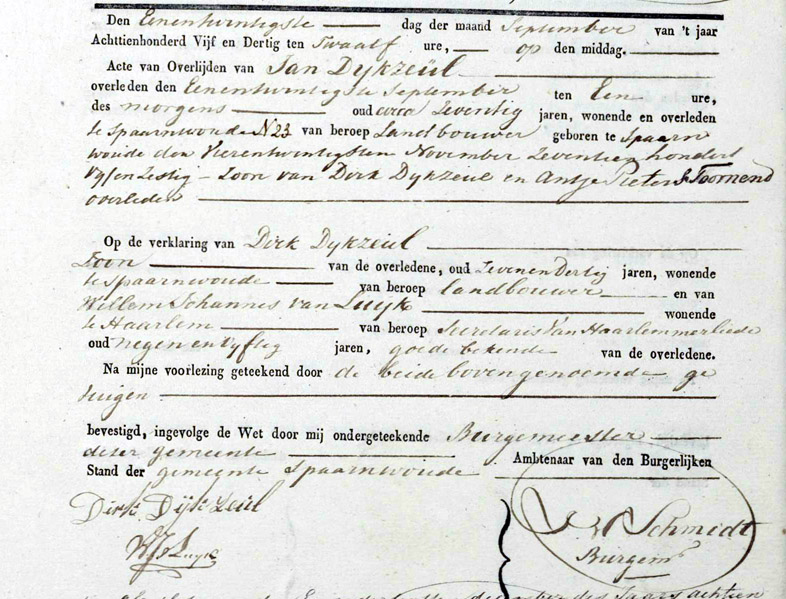 Den Eenentwintigste dag der maand September van 't jaar
Achttienhonderd Vijf en Dertig ten Twaalf ure, op den middag.
Acte van Overlijden van Jan Dykzeül
overleden den Eenentwintigste September ten Een ure,
des morgens oud circa Zeventig jaren, wonende en overleden
te Spaarnwoude N 23 van beroep Landbouwer geboren te Spaarn
woude den Vierentwintigsten November Zeventien hondert
Vyf en Zestig - Zoon van Dirk Dykzeul en Antje Pieters Toornend
overleden
Op de verklaring van Dirk Dykzeül
Zoon van de overledene, oud Zevenendertig jaren, wonende
te Spaarnwoude van beroep landbouwer en van
Willem Johannes van Luyk wonende
te Haarlem van beroep Secretaris van Haarlemmerliede
oud negen en vyftig jaren, goede bekende van de overledene.
Na mijne voorlezing geteekend door de beide bovengenoemde ge
tuigen
bevestigd, ingevolge de Wet door mij ondergeteekende Burgemeester
dezer gemeente Ambtenaar van den Burgerlijken
Stand der gemeente Spaarnwoude
Dirk Dijkzeül
Schmidt
Luyk
Burgem